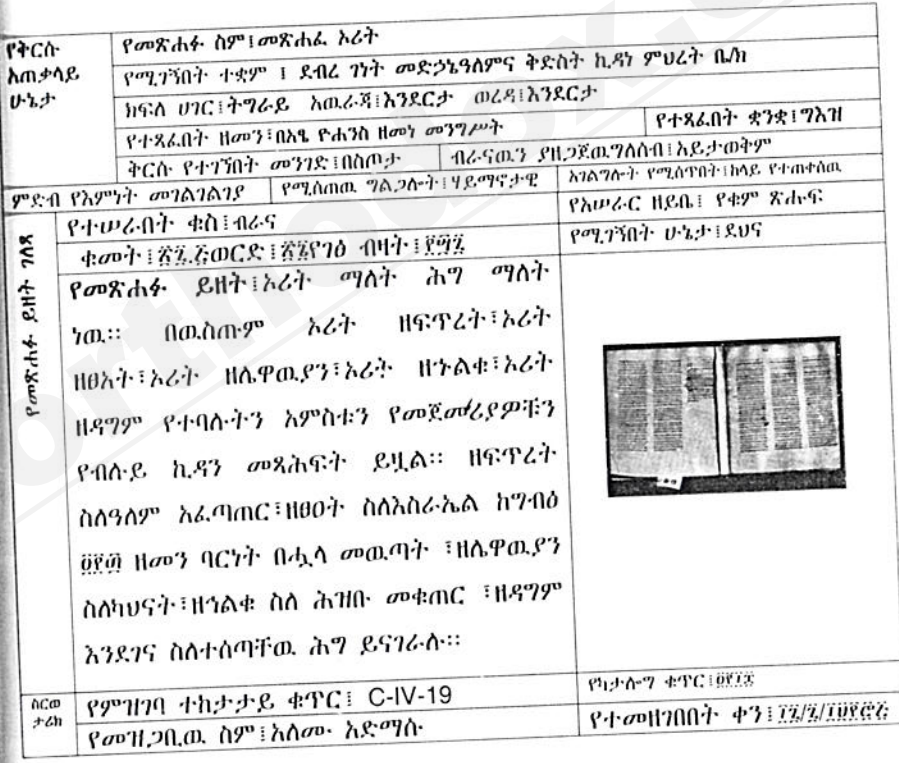 የቅርሱ አጠቃላይ ሁኔታ
የመጽሐፉ ስም፤መጽሐፈ ኦሪት
የሚገኝበት ተቋም ፤ ደብረ ገነት መድኃኔዓለምና ቅድስት ኪዳነ ምህረት ቤ/ክ
ክፍለ ሀገር፤ትግራይ አዉራጃ፤እንደርታ ወረዳ፤እንደርታ
የተጻፈበት ዘመን፤በአፄ ዮሐንስ ዘመነ መንግሥት
የተጻፈበት ቋንቋ፤ግእዝ
ቅርሱ የተገኘበት መንገድ፤በስጦታ
ብራናዉን ያዘጋጀዉግለሰብ፤አይታወቅም
ምድብ የእምነት መገልገልገያ
የሚሰጠዉ ግልጋሎት፤ሃይማኖታዊ
አገልግሎት የሚሰጥበት፤ከላይ የተጠቀሰዉ
የመጽሐፉ ይዘት ገለጻ
የተሠራበት ቁስ፤ብራና
የአሠራር ዘይቤ፤ የቁም ጽሑፍ
የሚገኝበት ሁኔታ፤ደህና
የመጽሐፉ ይዘት፤ኦሪት ማለት ሕግ ማለት
ነዉ፡፡ በዉስጡም ኦሪት ዘፍጥረት፣ኦሪት
ዘፀአት፣ኦሪት ዘሌዋዉያን፣ኦሪት ዘኍልቁ፣ኦሪት
ዘዳግም የተባሉትን አምስቱን የመጀመሪያዎቹን
የብሉይ ኪዳን መጻሕፍት ይዟል፡፡ ዘፍጥረት
ስለዓለም አፈጣጠር፣ዘፀዐት ስለእስራኤል ከግብፅ
ዘመን ባርነት በሗላ መዉጣት ፣ዘሌዋዉያን
ስለካህናት፣ዘኅልቁ ስለ ሕዝቡ መቁጠር ፣ዘዳግም
እንደገና ስለተሰጣቸዉ ሕግ ይናገራሉ፡፡
ስርወ ታሪክ
የምዝገባ ተከታታይ ቁጥር፤ C-IV-19
የካታሎግ ቁጥር፤
የመዝጋቢዉ ስም፤አለሙ አድማሱ
የተመዘገበበት ቀን፤